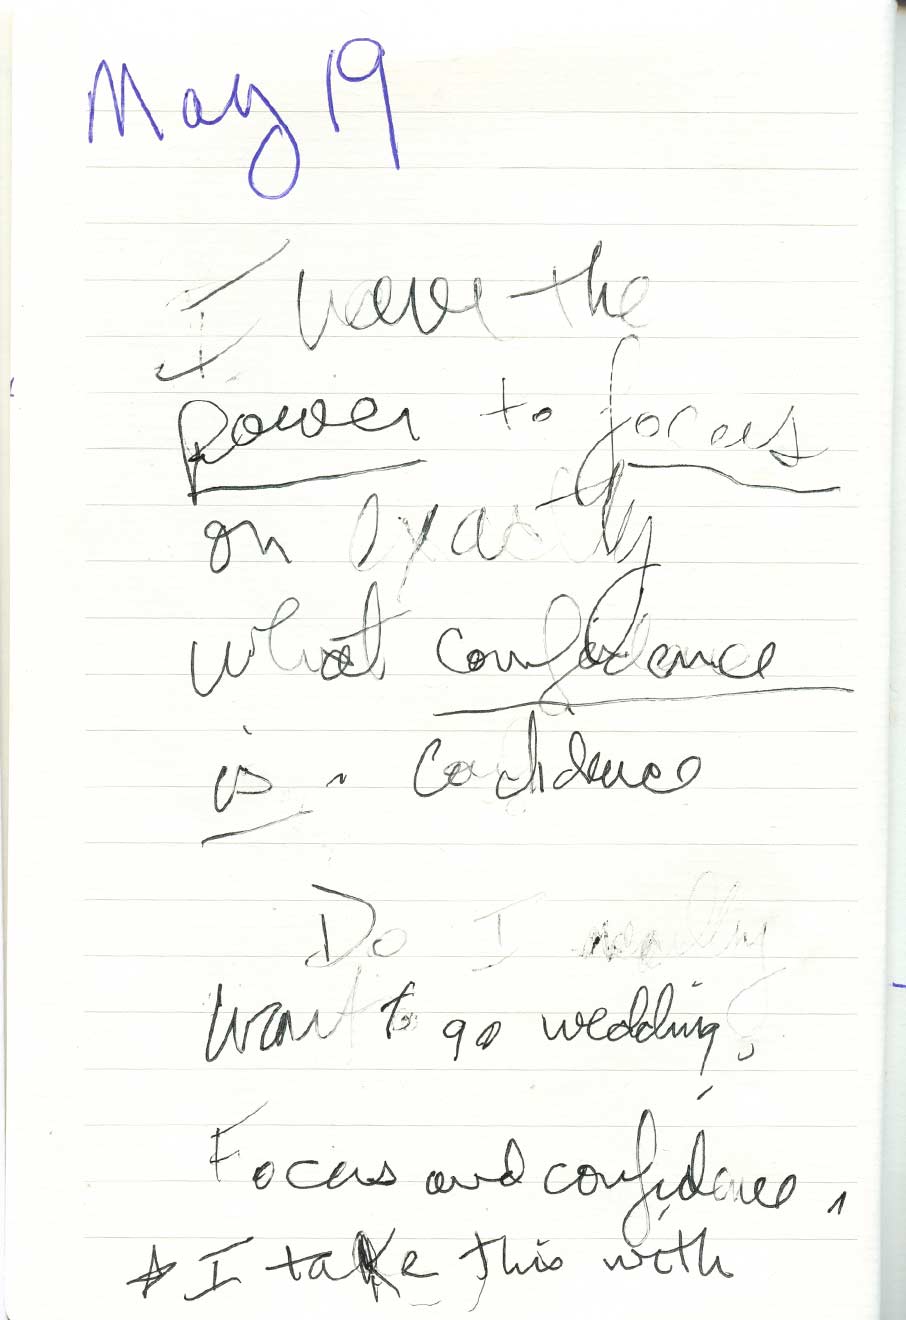 May 19
I have the
power to focus
on exactly
what confidence
is. Confidence
Do I really
want to go wedding?
Focus and confidence,
☆ I take this with